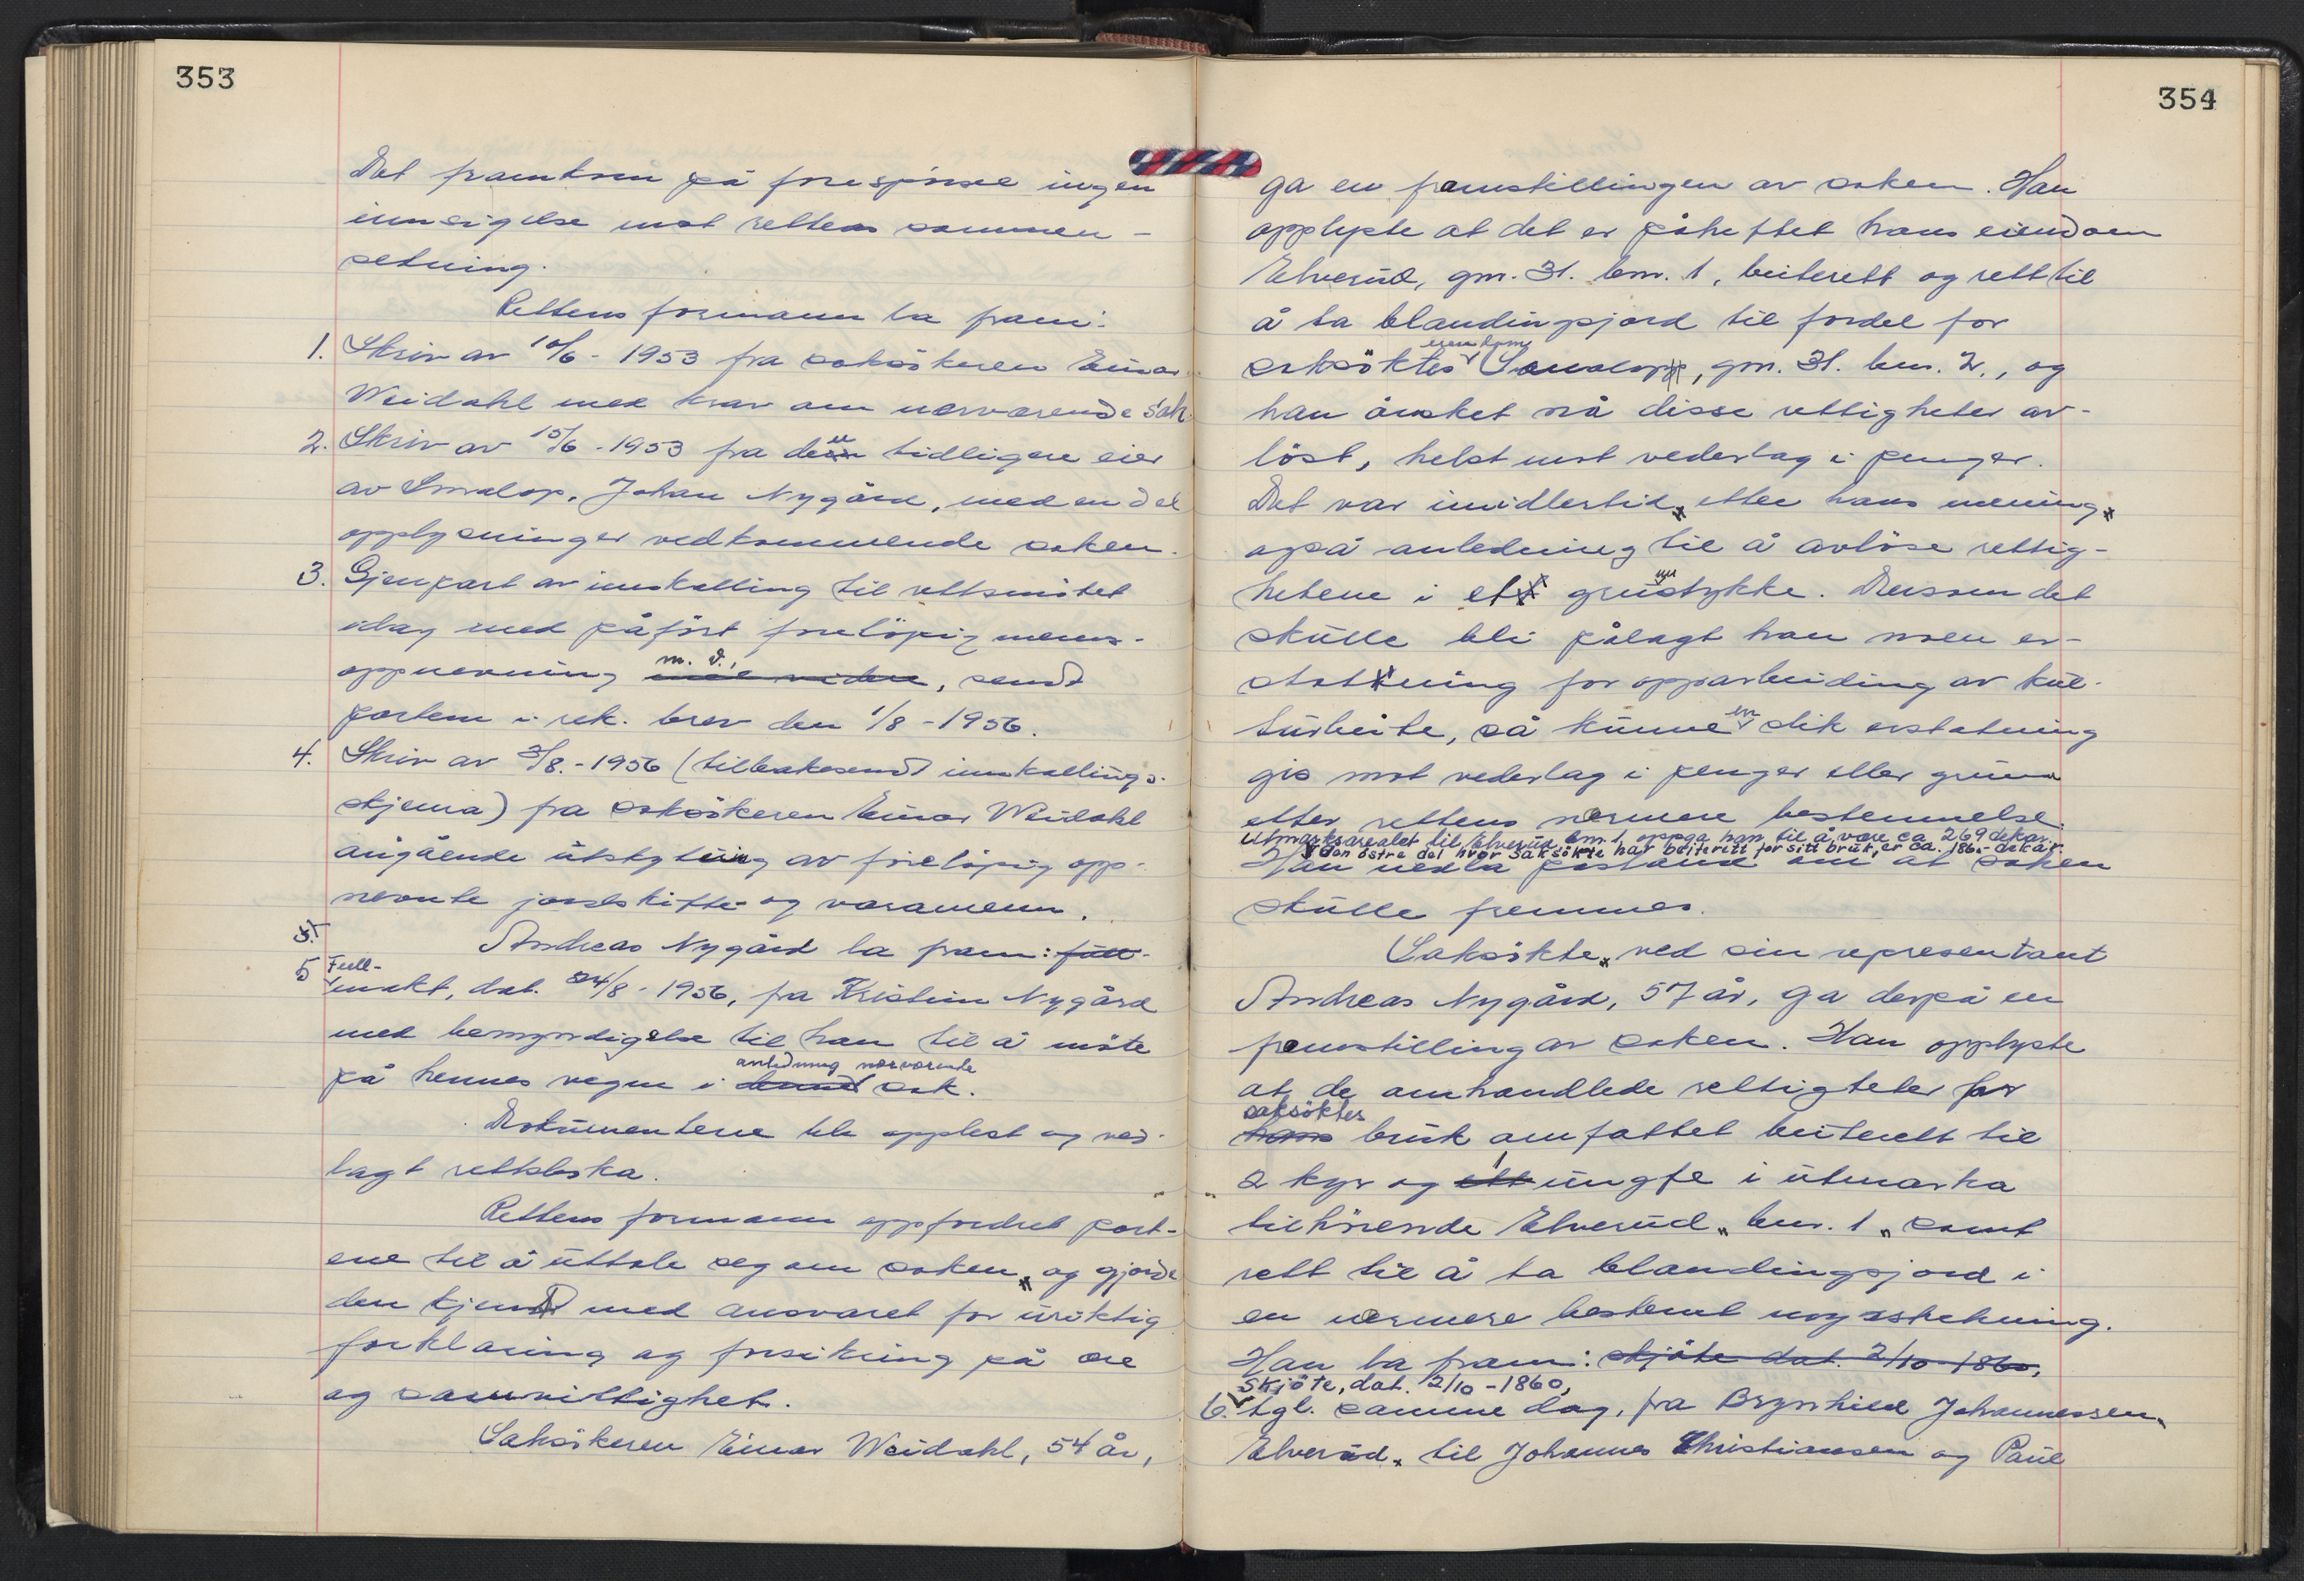 353
Det framkom på forespörsel ingen
innsigelse mot rettens sammen-
setning.
Rettens formann la fram:
1. Skriv av 10/6 - 1953 fra saksökeren Einar
Weidahl med krav om nærværende sak.
2. Skriv av 15/6 - 1953 fra den tidligere eier
av Smalop, Johan Nygård, med en del
opplysninger vedkommende saken.
3. Gjenpart av innkalling til rettsmötet
idag med påfört forelöpig menns-
m. v.,
oppnevning med videre, sendt
partene i rek. brev den 1/8 - 1956.
4. Skriv av 3/8. - 1956 (tilbakesendt innkallings-
skjema) fra saksökeren Einar Weidahl
angående utskyting av forelöpig opp-
nevnte jordskifte- og varamenn.
Andreas Nygård la fram: full-
5 Full-
makt, dat. 24/8 - 1956, fra Kristine Nygård
med bemyndigelse til han til å möte
anledning nærværende
på hennes vegne i denne sak.
Dokumentene ble opplest og ved-
lagt rettsboka.
Rettens formann oppfordret part-
ene til å uttale seg om saken, og gjorde
dem kjendt med ansvaret for uriktig
forklaring og forsikring på ære
og samvittighet.
Saksökeren Einar Weidahl, 54 år,
354
ga en framstillingen av saken. Han
opplyste at det er påheftet hans eiendom
Elverud, gnr. 31. bnr. 1, beiterett og rett til
å ta blandingsjord til fordel for
eiendom
saksöktes Smalop, gnr. 31. bnr. 2., og
han önsket nå disse rettigheter av-
löst, helst mot vederlag i penger.
Det var imidlertid, etter hans mening,
også anledning til å avlöse rettig-
hetene i et grunnstykke. Dersom det
skulle bli pålagt han noen er-
statning for opparbeiding av kul-
en
turbeite, så kunne slik erstatning
gis mot vederlag i penger eller grunn
etter rettens nærmere bestemmelse.
Utmarksarealet til Elverud, bnr. 1, oppga han til å være ca. 269 dekar.
I den östre del hvor saksökte har beiterett for sitt bruk, er ca. 186.- dekar.
Han nedla påstand om at saken
skulle fremmes.
Saksökte, ved sin representant
Andreas Nygård, 57 år, ga derpå en
framstilling av saken. Han opplyste
at de omhandlede rettigheter for
saksöktes
hans bruk omfattet beiterett til
1
2 kyr og ett ungfe i utmarka
tilhörende Elverud, bnr. 1, samt
rett til å ta blandingsjord i
en nærmere bestemt utstrekning.
Han la fram: skjöte dat. 2/10 - 1860,
Skjöte, dat. 2/10 - 1860,
6. tgl. samme dag, fra Brynhild Johannessen,
Elverud, til Johannes Christiansen og Paul